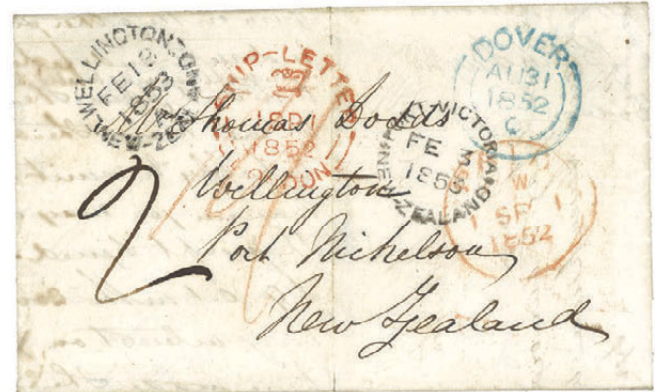 WELLINGTON
FE 12
1853
NEW-ZEALAND
SHIP-LETTER
1852
LONDON
DOVER
AU 31
1852
C
NEW VICTORIA
FE 3
1853
NEW-ZEALAND
W
SP 1
1852
Mr Thomas Dodds
Wellington
Port Nicholson
New Zealand
2